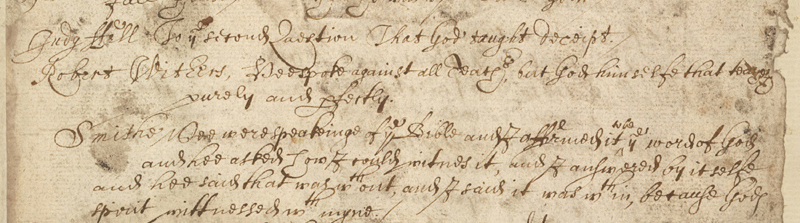 Judg Fell To yᵉ second Question That God taught deceipt.
Robert Withers, Hee spoke against all Teachʳˢ, but God himselfe that teacheth
purely and pfectly.
Smithe Wee were speakeinge of yᵉ Bible and I affirmed it was yᵉ word of God
and hee asked how I could witnes it, and I answered by it selfe
and hee said that was wᵗʰout, and I said it was wᵗʰin, because Gods
spirit wittnessed wᵗʰ myne.